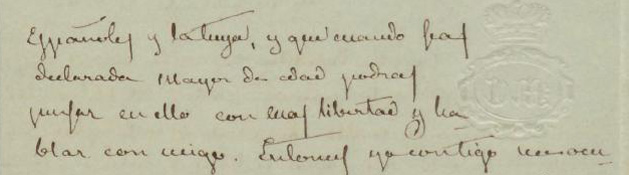 Españoles y la tuya, y que cuando seas
declarada mayor de edad podras
pensar en ello con mas libertad y ha
blar con migo. Entonces yo contigo